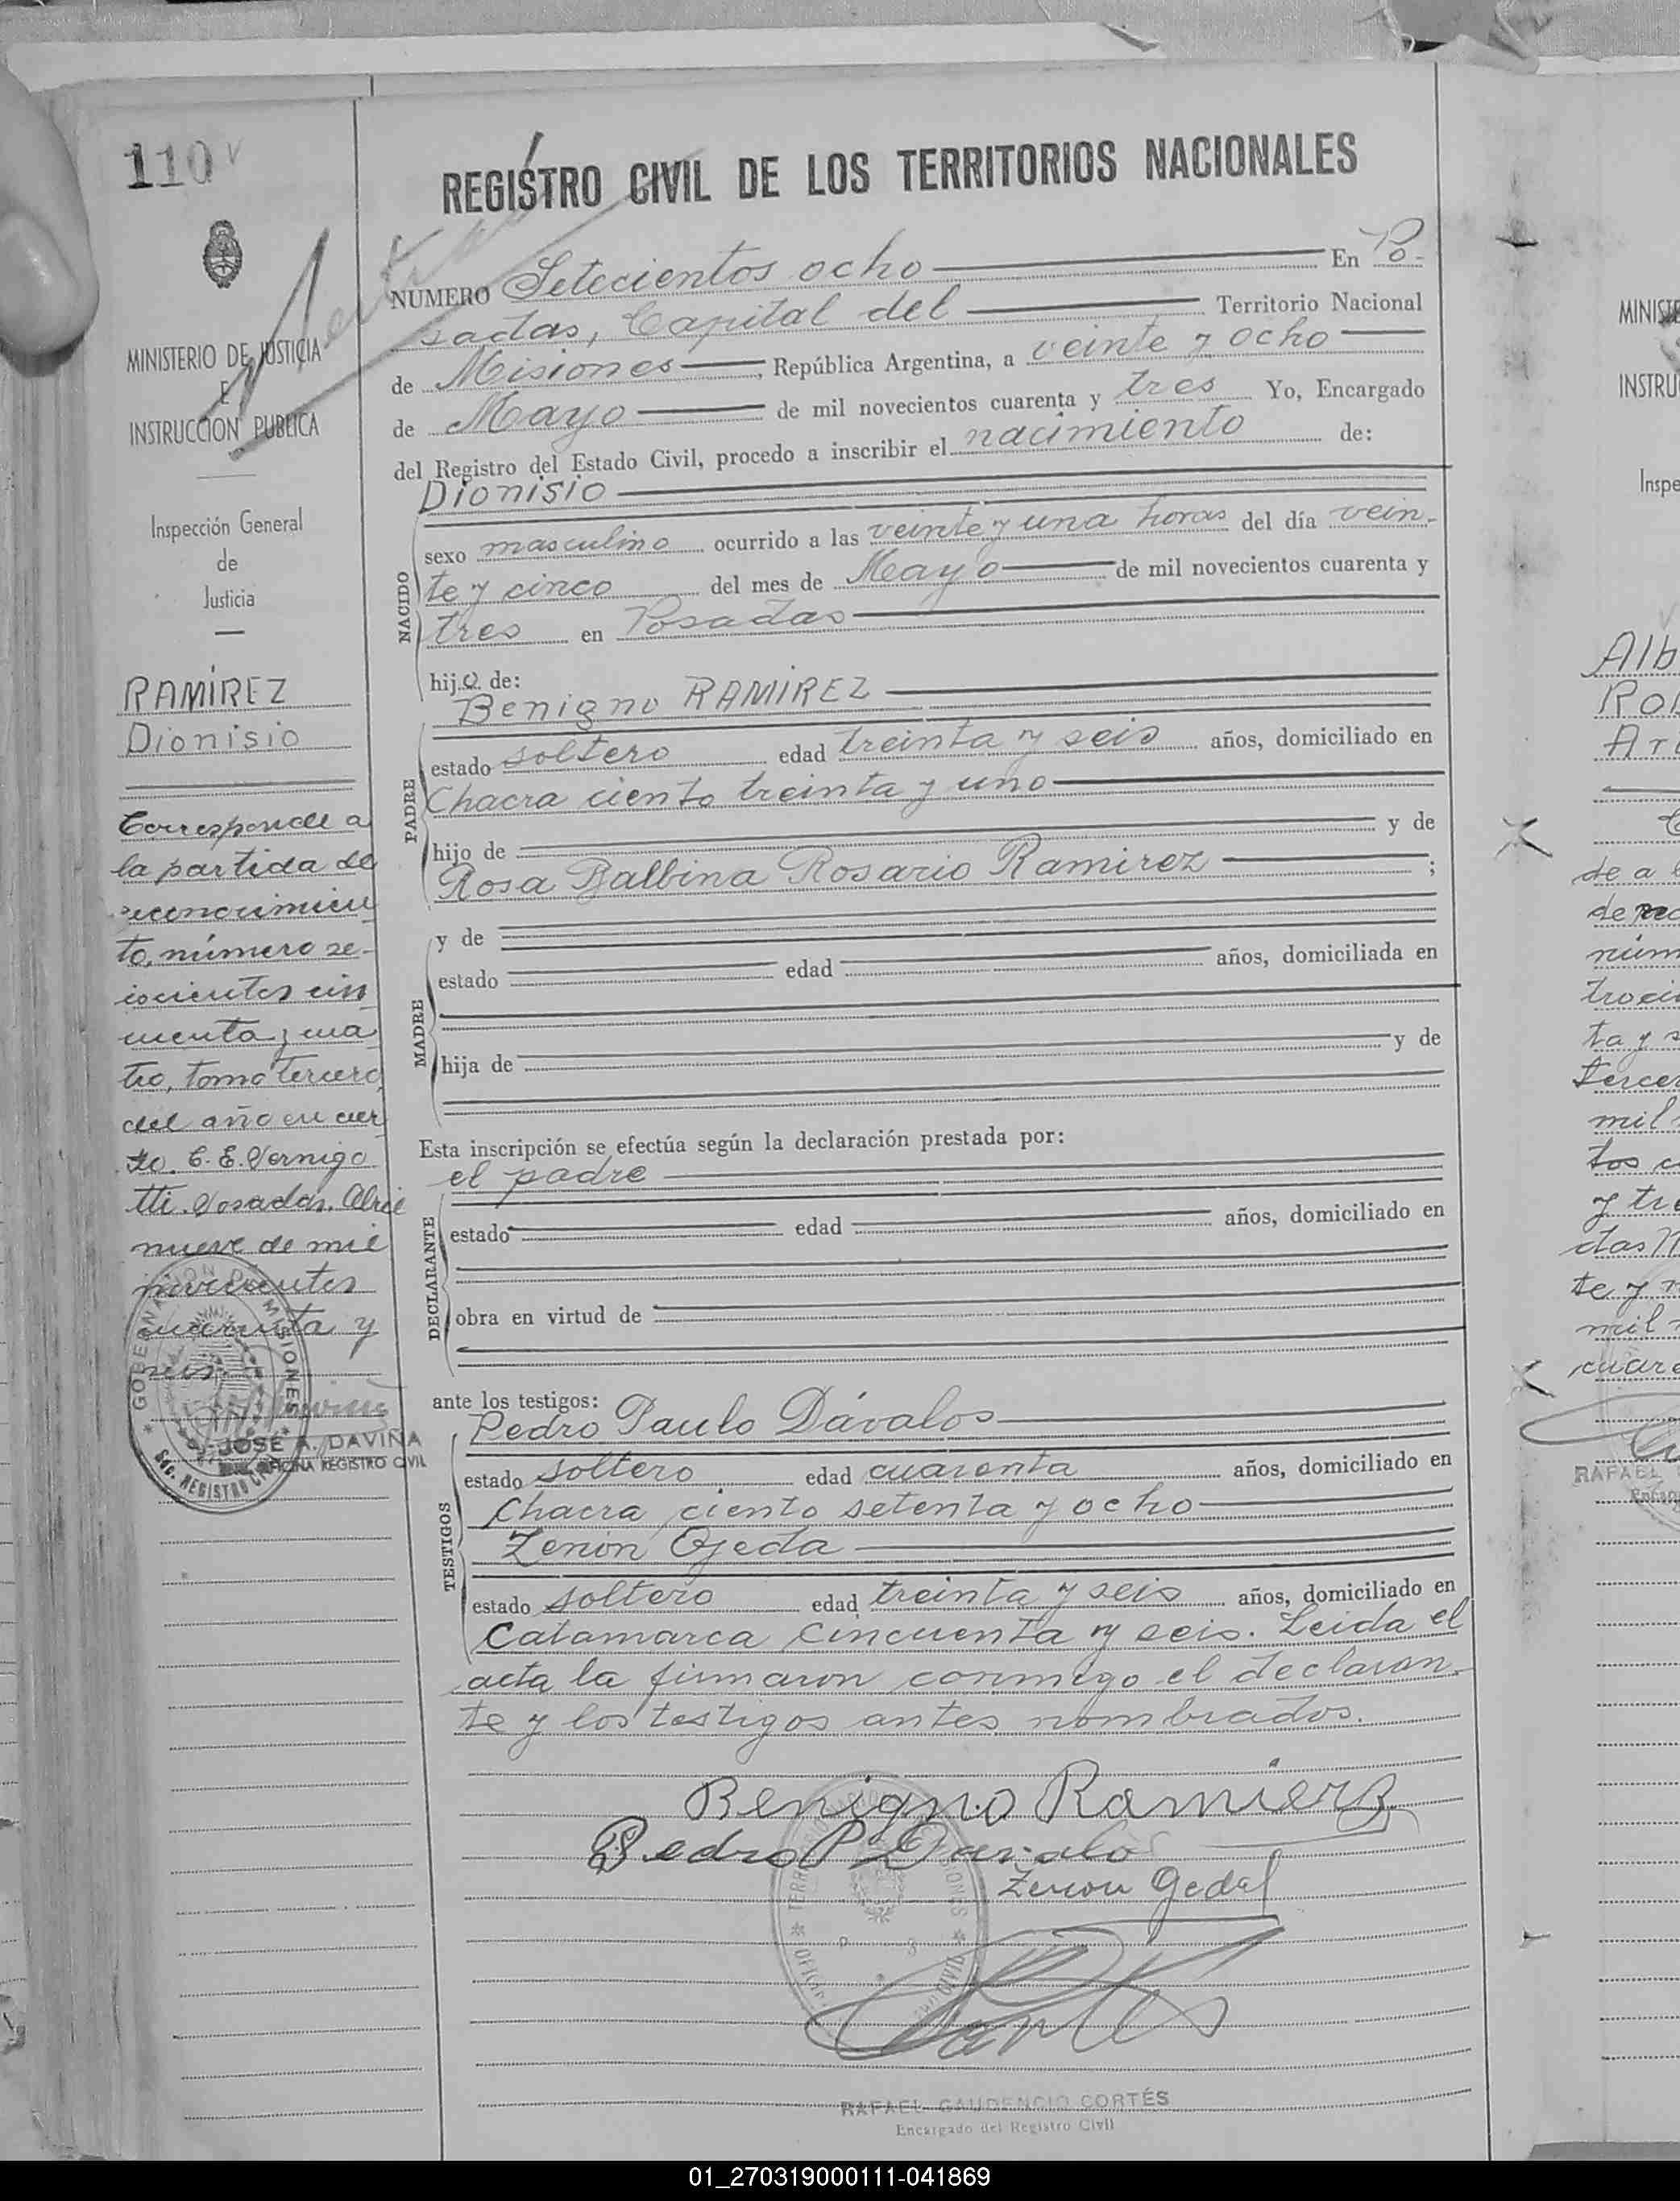 110
REGISTRO CIVIL DE LOS TERRITORIOS NACIONALES
NUMERO Setecientos ocho En Po-
sadas, Capital del Territorio Nacional
de Misiones, República Argentina, a veinte y ocho
de Mayo de mil novecientos cuarenta y tres Yo, Encargado
del Registro del Estado Civil, procedo a inscribir el nacimiento de:
Dionisio
sexo masculino ocurrido a las veinte y una horas del día vein-
te y cinco del mes de Mayo de mil novecientos cuarenta y
tres en Posadas
NACIDO
hijo de:
Benigno RAMIREZ
estado soltero edad treinta y seis años, domiciliado en
Chacra ciento treinta y uno
hijo de y de
Rosa Balbina Rosario Ramirez ;
PADRE
y de
estado edad años, domiciliada en
hija de y de
MADRE
Esta inscripción se efectúa según la declaración prestada por:
el padre
estado edad años, domiciliado en
obra en virtud de
DECLARANTE
ante los testigos:
Pedro Paulo Dávalos
estado soltero edad cuarenta años, domiciliado en
Chacra ciento setenta y ocho
Zenón Ojeda
estado soltero edad treinta y seis años, domiciliado en
Catamarca cincuenta y seis. Leida el
TESTIGOS
acta la firmaron conmigo el declaran-
te y los testigos antes nombrados.
Benigno Ramierz
Pedro P Davalos
Zenon Ojeda
RAFAEL GAUDENCIO CORTÉS
Encargado del Registro Civil
MINISTERIO DE JUSTICIA
E
INSTRUCCIÓN PUBLICA
Inspección General
de
Justicia
RAMÍREZ
Dionisio
Corresponde a
la partida de
reconocimien
to, número se-
iscientos cin
cuenta y cua
tro, tomo tercero,
del año en cur
so. C. E. Vernigo
tti. Posadas. Abril
nueve de mil
novecientos
cuarenta y
seis.
GOBERNACION DE MISIONES
REGISTRO CIVIL
JOSÉ A. DAVIÑA
OFICINA REGISTRO CIVIL
MINISTE
INSTRU
Inspe
Alb
Ro
Ar
de a
de rec
núm
troci
ta y s
tercer
mil
tos c
y tre
das
te y
mil
cuare
RAFAEL
Encarg
01_270319000111-041869